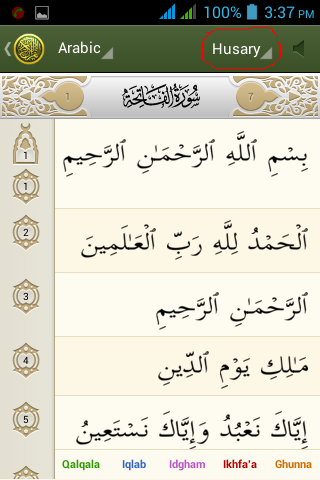 100% 3:37 PM
Arabic Husary
1 سُورَةُ الْفَاتِحَةِ 7
1
1 بِسْمِ ٱللَّهِ ٱلرَّحْمَـٰنِ ٱلرَّحِيمِ
2 ٱلْحَمْدُ لِلَّهِ رَبِّ ٱلْعَـٰلَمِينَ
3 ٱلرَّحْمَـٰنِ ٱلرَّحِيمِ
4 مَـٰلِكِ يَوْمِ ٱلدِّينِ
5 إِيَّاكَ نَعْبُدُ وَإِيَّاكَ نَسْتَعِينُ
Qalqala Iqlab Idgham Ikhfa'a Ghunna